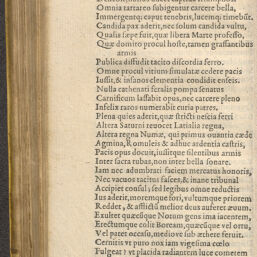 Omnia tartareo subigentur carcere bella,
Immergentq; caput tenebris, lucemq; timebūt.
Candida pax aderit, nec solum candida vultu,
Qualis sæpe fuit, quæ libera Marte professo,
Quæ domito procul hoste, tamen grassantibus
armis
Publica diffudit tacito discordia ferro.
Omne procul vitium simulatæ cedere pacis
Iussit, & insanos clementia condidit enseis.
Nulla catenati feralis pompa senatus
Carnificum lassabit opus, nec carcere pleno
Infelix raros numerabit curia patres.
Plena quies aderit, quæ strictì nescia ferri
Altera Saturni revocet Latialia regna,
Altera regna Numæ, qui primus ouantia cæde
Agmina, Romuleis & adhuc ardentia castris,
Pacis opus docuit, iussitque silentibus armis
Inter sacra tubas, non inter bella sonare.
Iam nec adumbrati faciem mercatus honoris,
Nec vacuos tacitus fasces, & inane tribunal
Accipiet consul; sed legibus omne reductis
Ius aderit, moremque fori, vultumque priorem
Reddet, & afflictū melior deus auferet æuum.
Exultet quæcunque Notum gens ima iacentem,
Erectumque colit Boream, quæcunque vel ortu,
Vel patet occasu, mediove sub æthere feruit.
Cernitis vt puro nox iam vigesima cœlo
Fulgeat? vt placida radiantem luce cometem